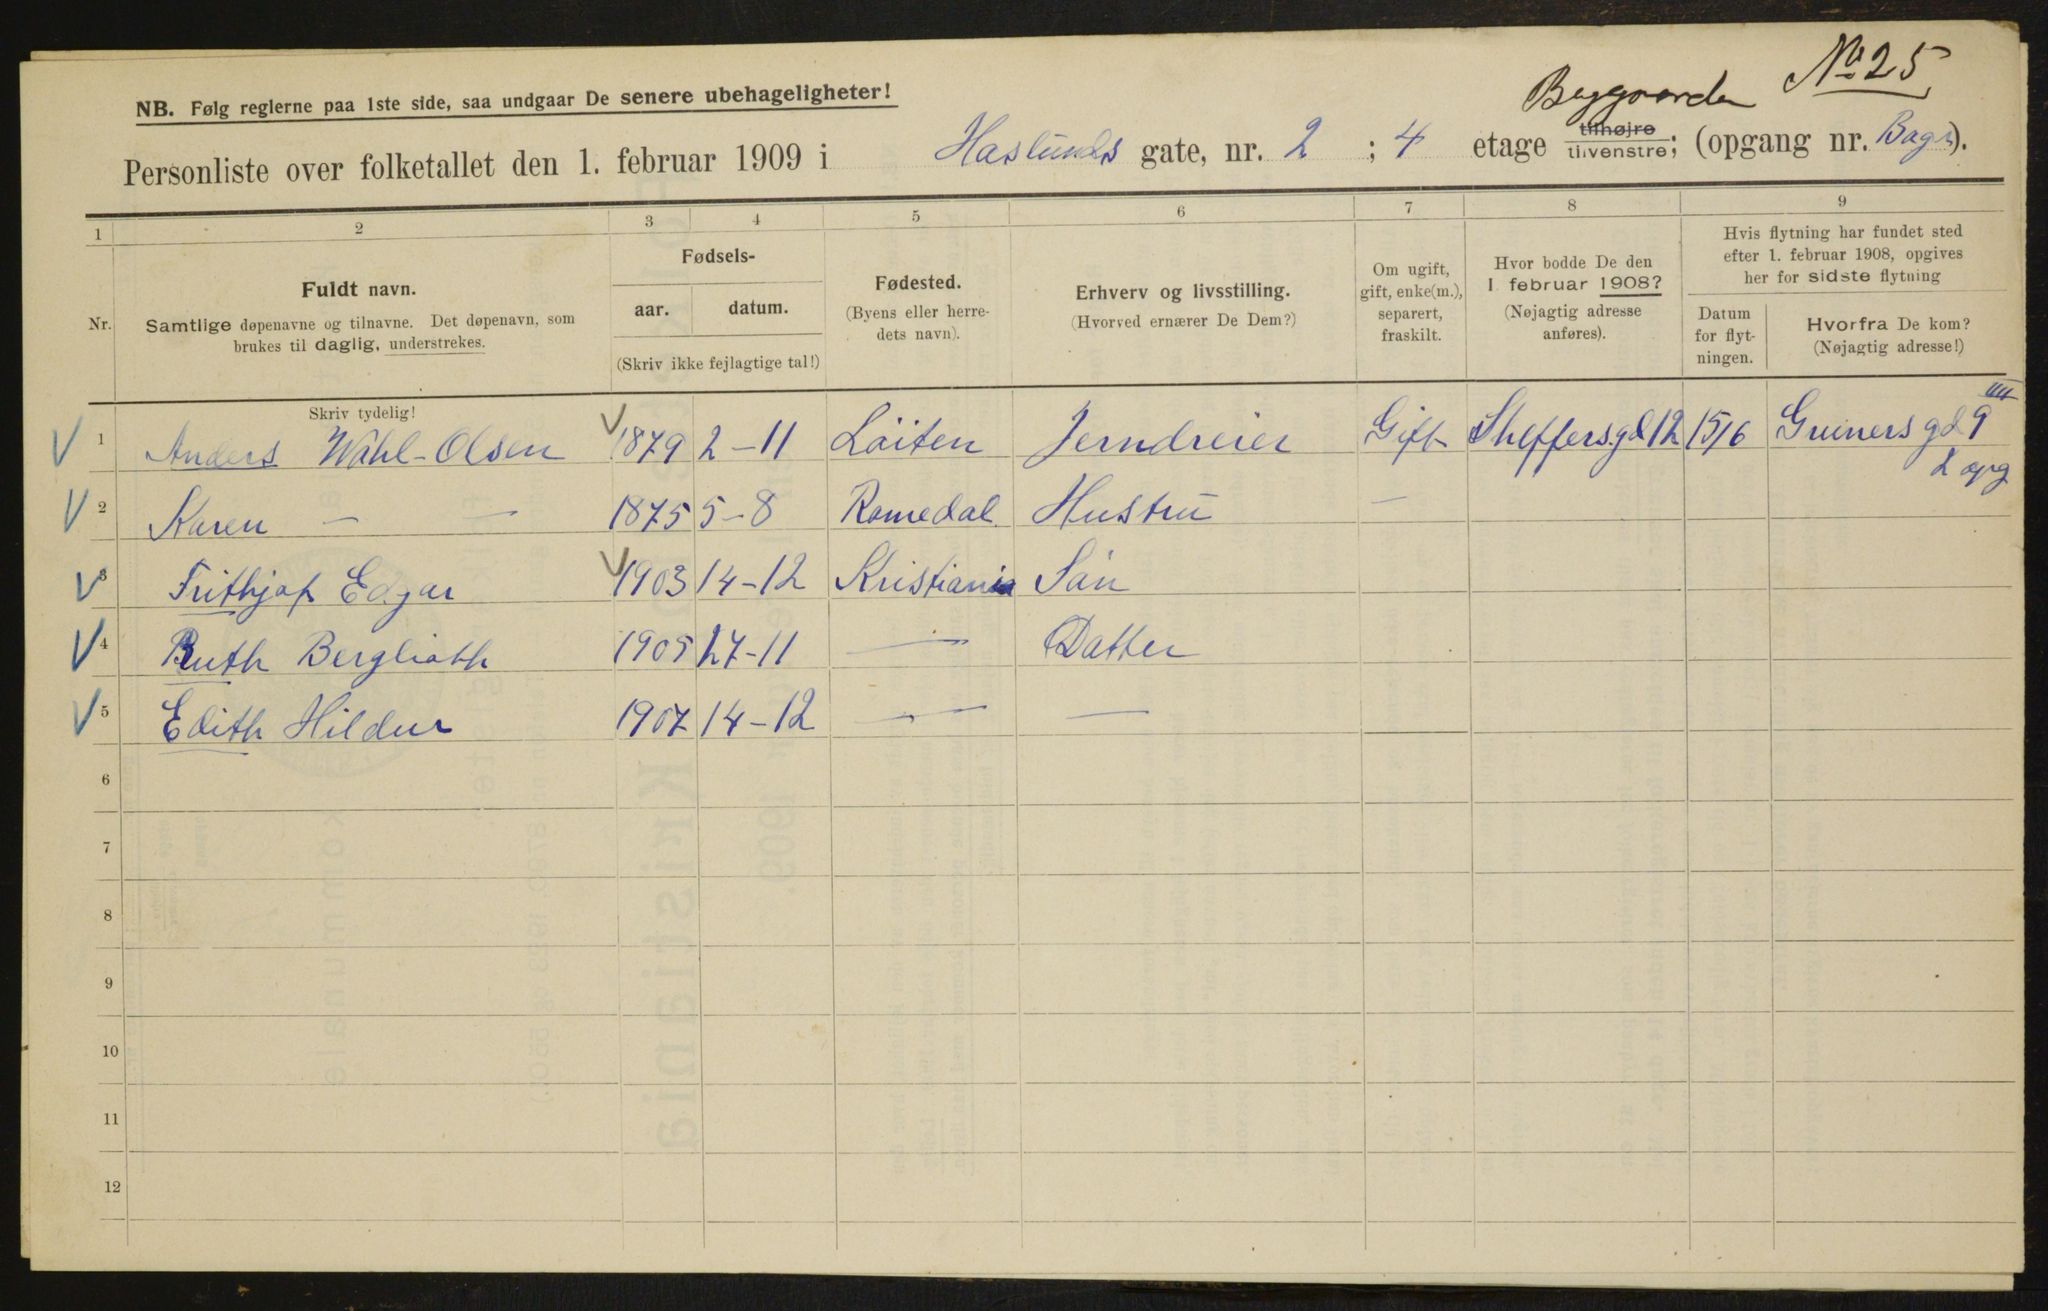 Baggaarden No 25
NB. Følg reglerne paa 1ste side, saa undgaar De senere ubehageligheter!
Personliste over folketallet den 1. februar 1909 i Haslunds gate, nr. 2 ; 4 etage tilhøjre tilvenstre; (opgang nr. Bag).
1 2 3 4 5 6 7 8 9
Nr.
Fuldt navn.
Samtlige døpenavne og tilnavne. Det døpenavn, som
brukes til daglig, understrekes.
Fødsels-
aar. datum.
(Skriv ikke fejlagtige tal!)
Fødested.
(Byens eller herre-
dets navn).
Erhverv og livsstilling.
(Hvorved ernærer De Dem?)
Om ugift,
gift, enke(m.),
separert,
fraskilt.
Hvor bodde De den
1 februar 1908?
(Nøjagtig adresse
anføres).
Hvis flytning har fundet sted
efter 1. februar 1908, opgives
her for sidste flytning
Datum
for flyt-
ningen.
Hvorfra De kom?
(Nøjagtig adresse!)
Skriv tydelig!
1 Anders Wahl-Olsen 1879 2-11 Løiten Jerndreier Gift Sheffersgd 12 15/6 Gruners gd 9 IIII
2 opg
2 Karen — — 1875 5-8 Romedal Hustru —
3 Frithjof Edgar 1903 14-12 Kristiania Søn
4 Ruth Berglioth 1905 27-11 — Datter
5 Edith Hildur 1907 14-12 — —
6
7
8
9
10
11
12